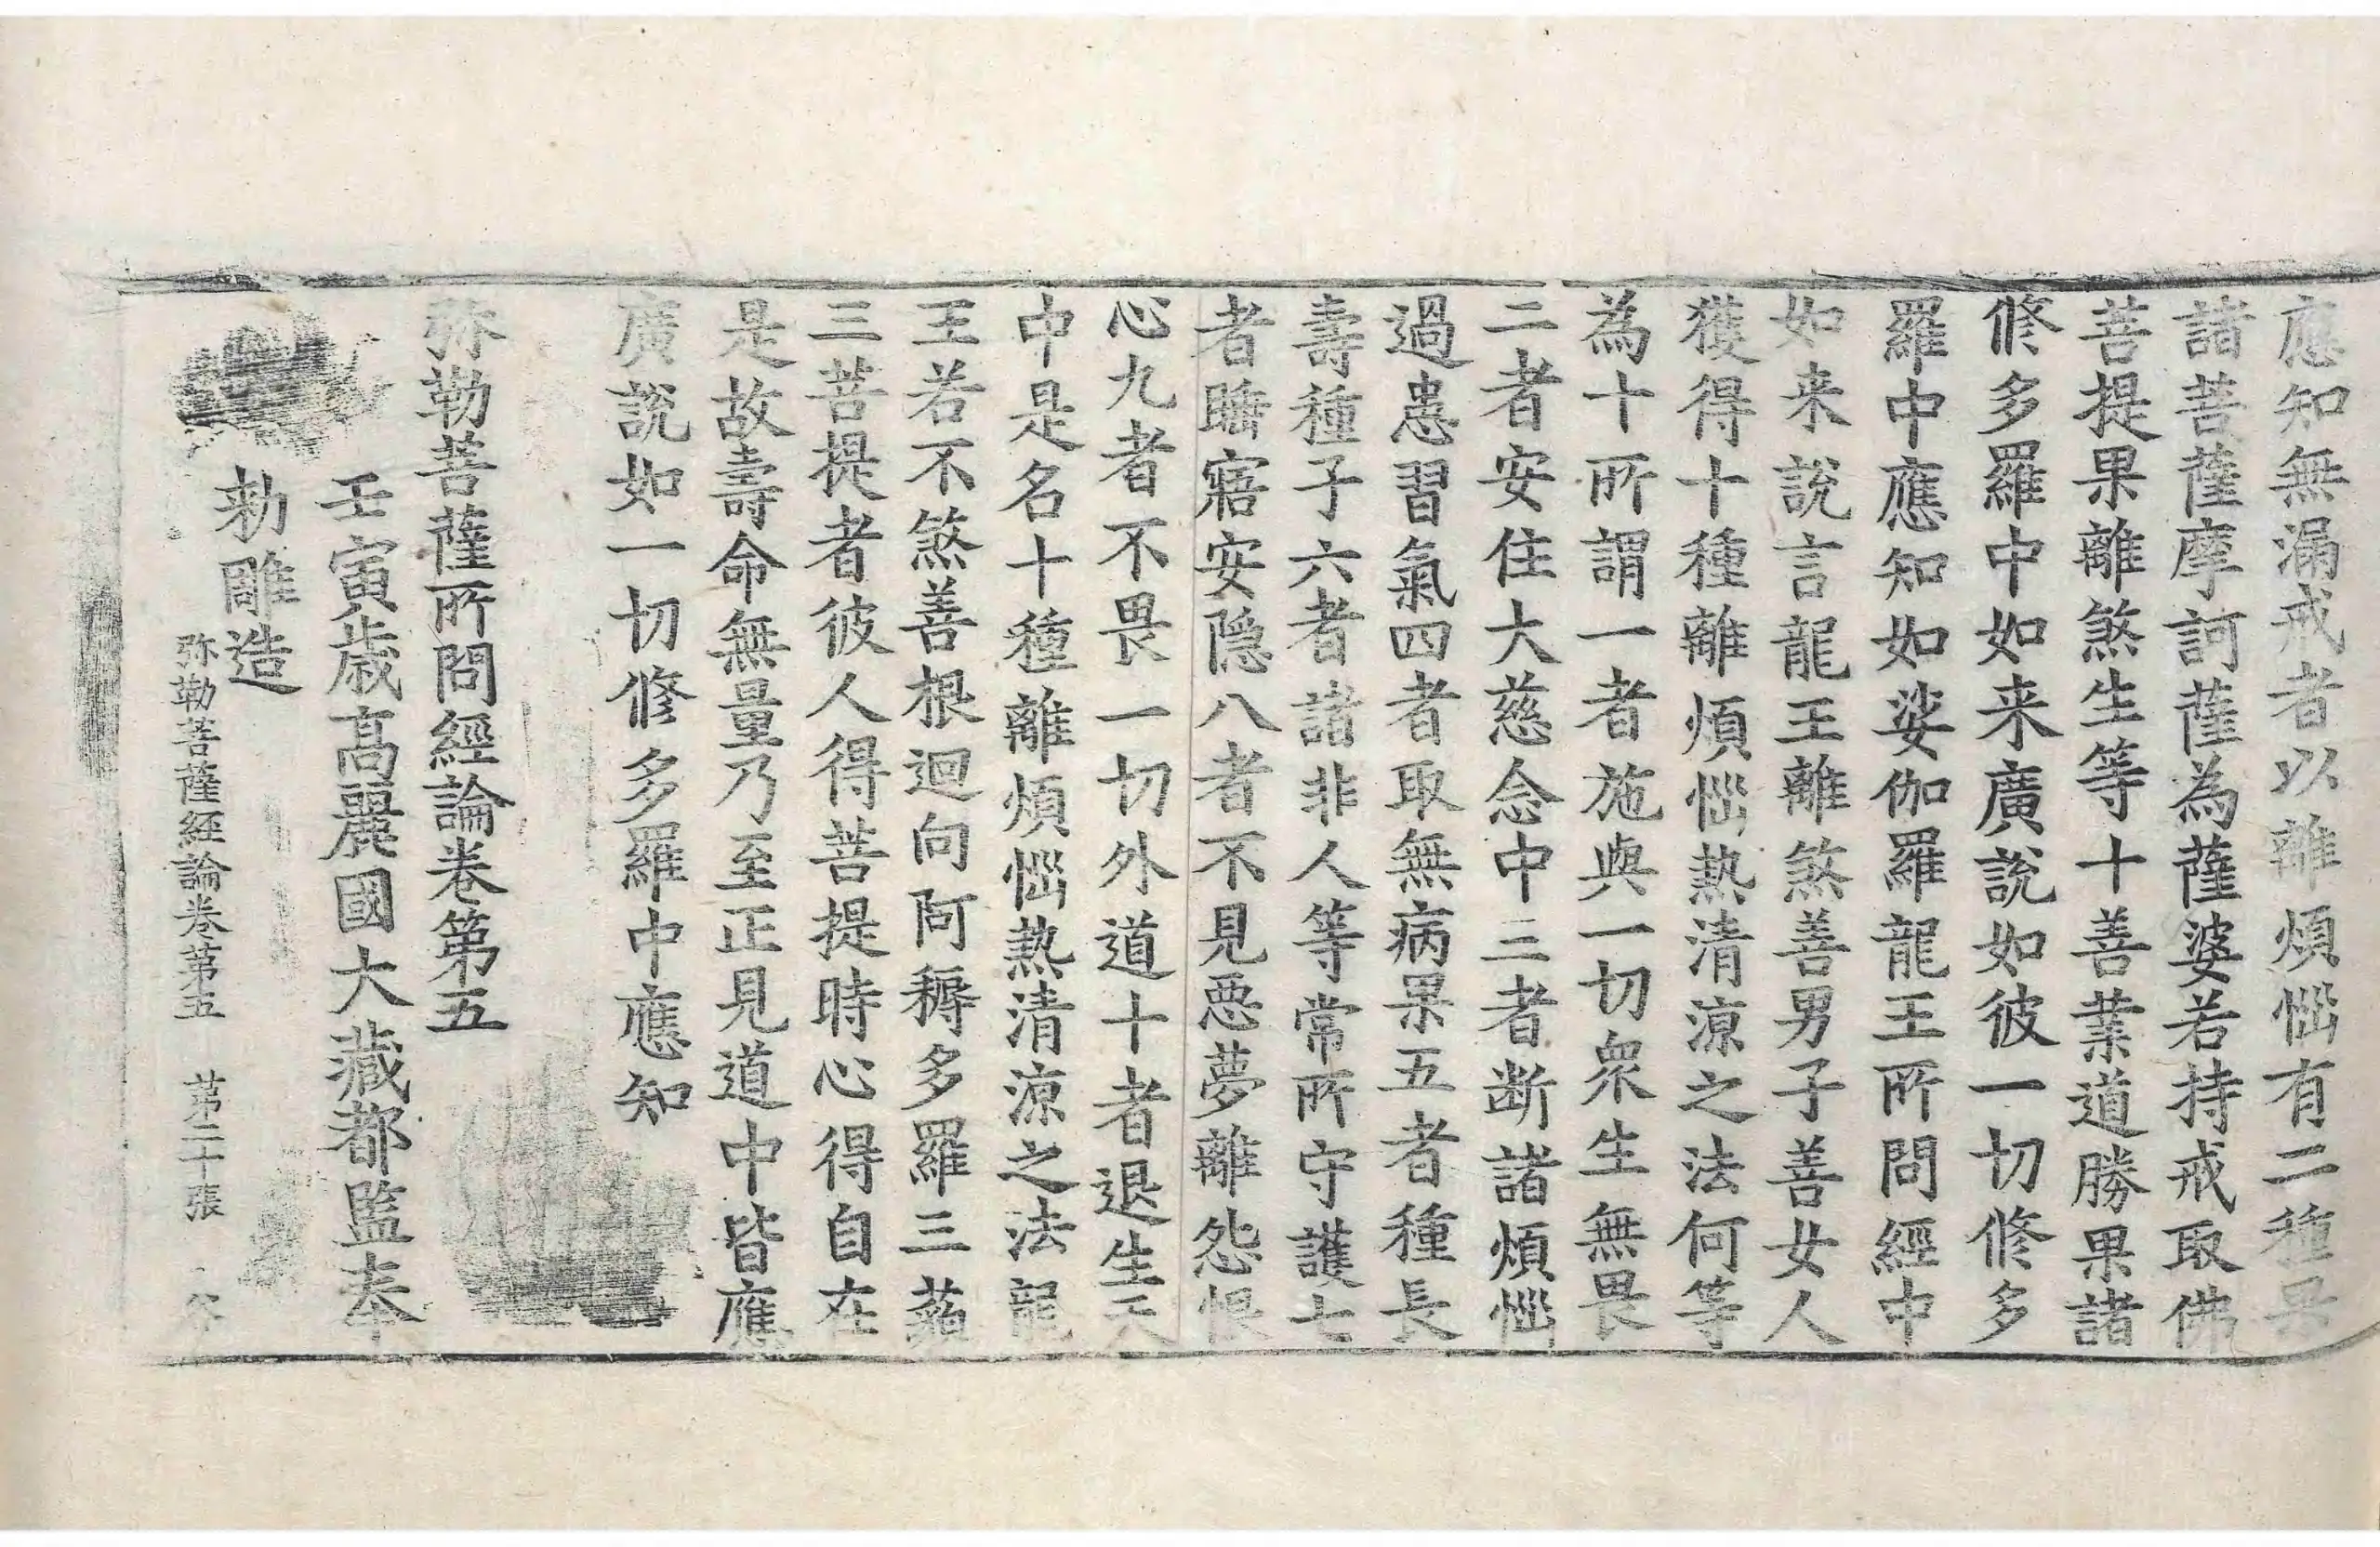 應知無漏戒者以離煩惱有二種畏
諸菩薩摩訶薩為薩婆若持戒取佛
菩提果離煞生等十善業道勝果諸
修多羅中如来廣說如彼一切修多
羅中應知如娑伽羅龍王所問經中
如来說言龍王離煞善男子善女人
獲得十種離煩惱熱清涼之法何等
為十所謂一者施與一切衆生無畏
二者安住大慈念中三者斷諸煩惱
過患習氣四者取無病果五者種長
壽種子六者諸非人等常所守護七
者睡寤安隱八者不見惡夢離怨恨
心九者不畏一切外道十者退生天
中是名十種離煩惱熱清涼之法龍
王若不煞善根迴向阿耨多羅三藐
三菩提者彼人得菩提時心得自在
是故壽命無量乃至正見道中皆應
廣說如一切修多羅中應知
弥勒菩薩所問經論卷第五
壬寅歲髙麗國大藏都監奉
勑雕造
弥勒菩薩經論卷第五 第二十張